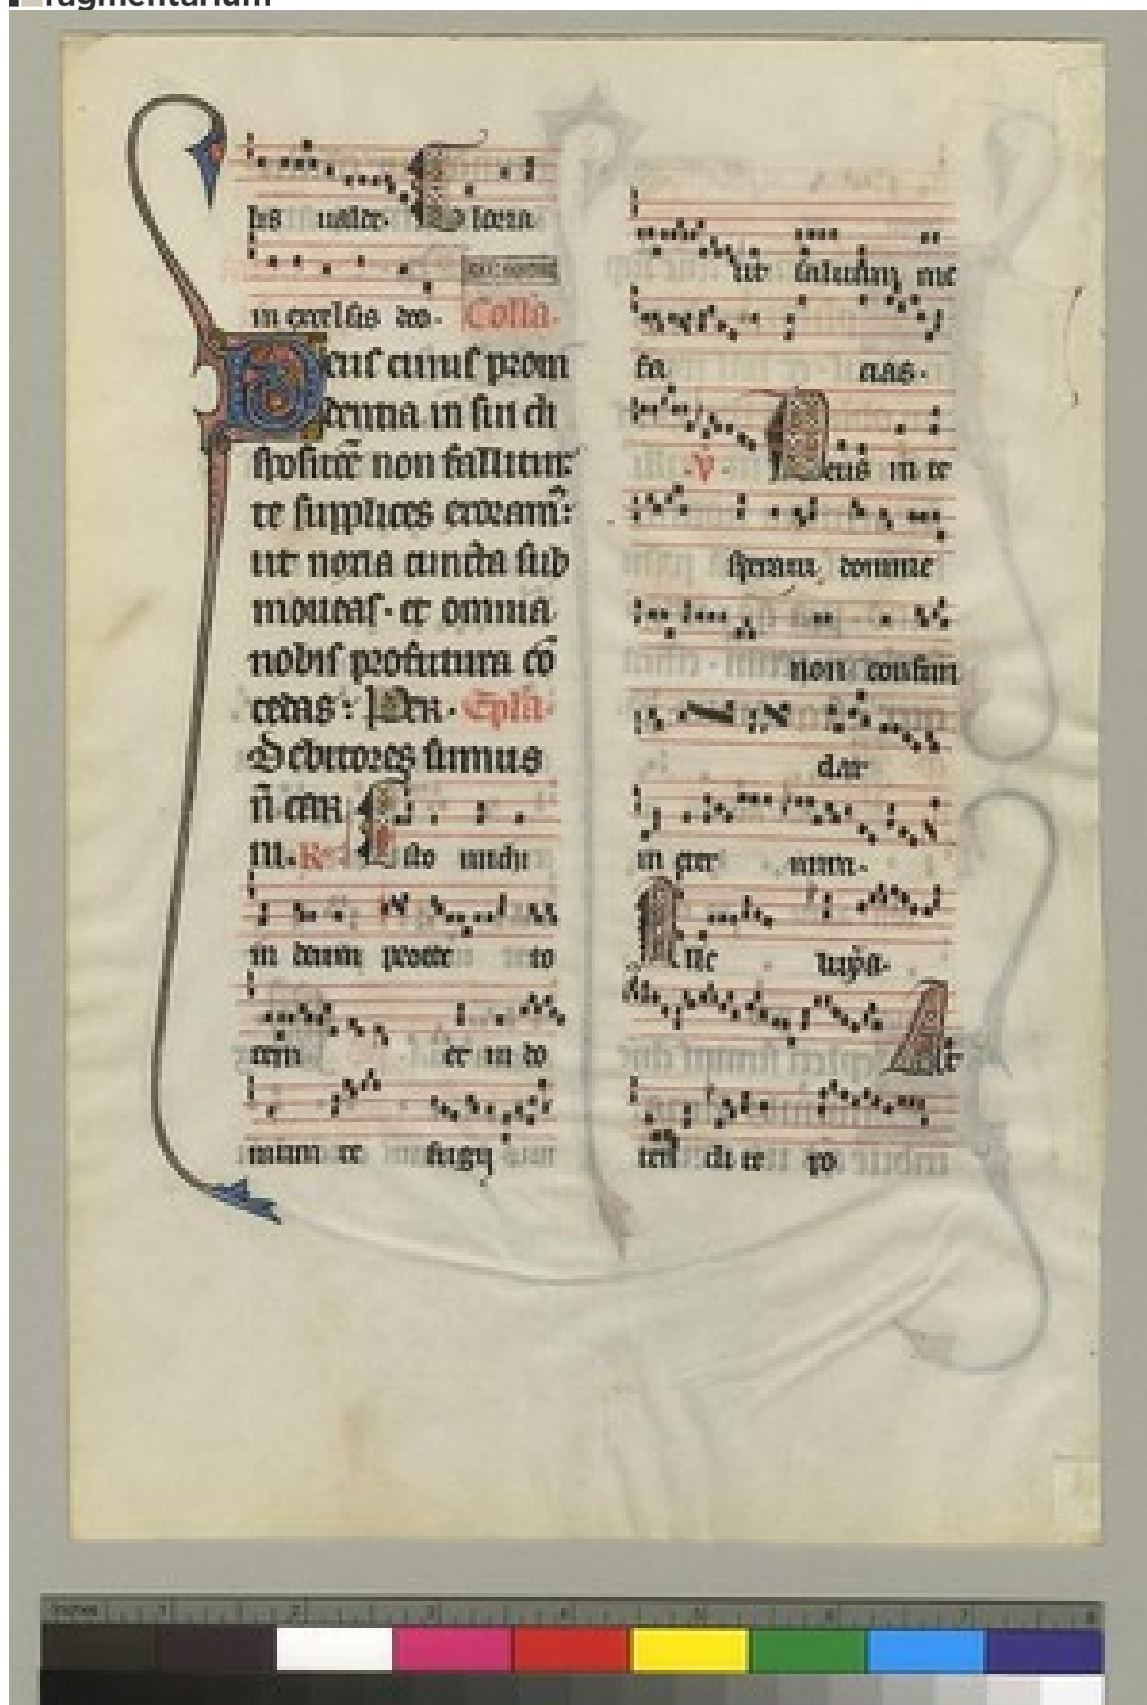 fragmentarium
bis uester. Gloria
in excelsis deo. Colla.
Deus cuius proui
dentia in sui di
spositiõe non fallitur:
te supplices exoram̃:
ut noxia cuncta sub
moueas. et omnia
nobis profutura cõ
cedas: Per. Epla.
Debitores sumus
ñ. car
ni. R. Esto michi
in deum protec to
rem et in lo
cum re fugij
ut saluum me
fa cias.
V. Deus in te
speraui domine
non confun
dar
in eter num.
All
ter di te po